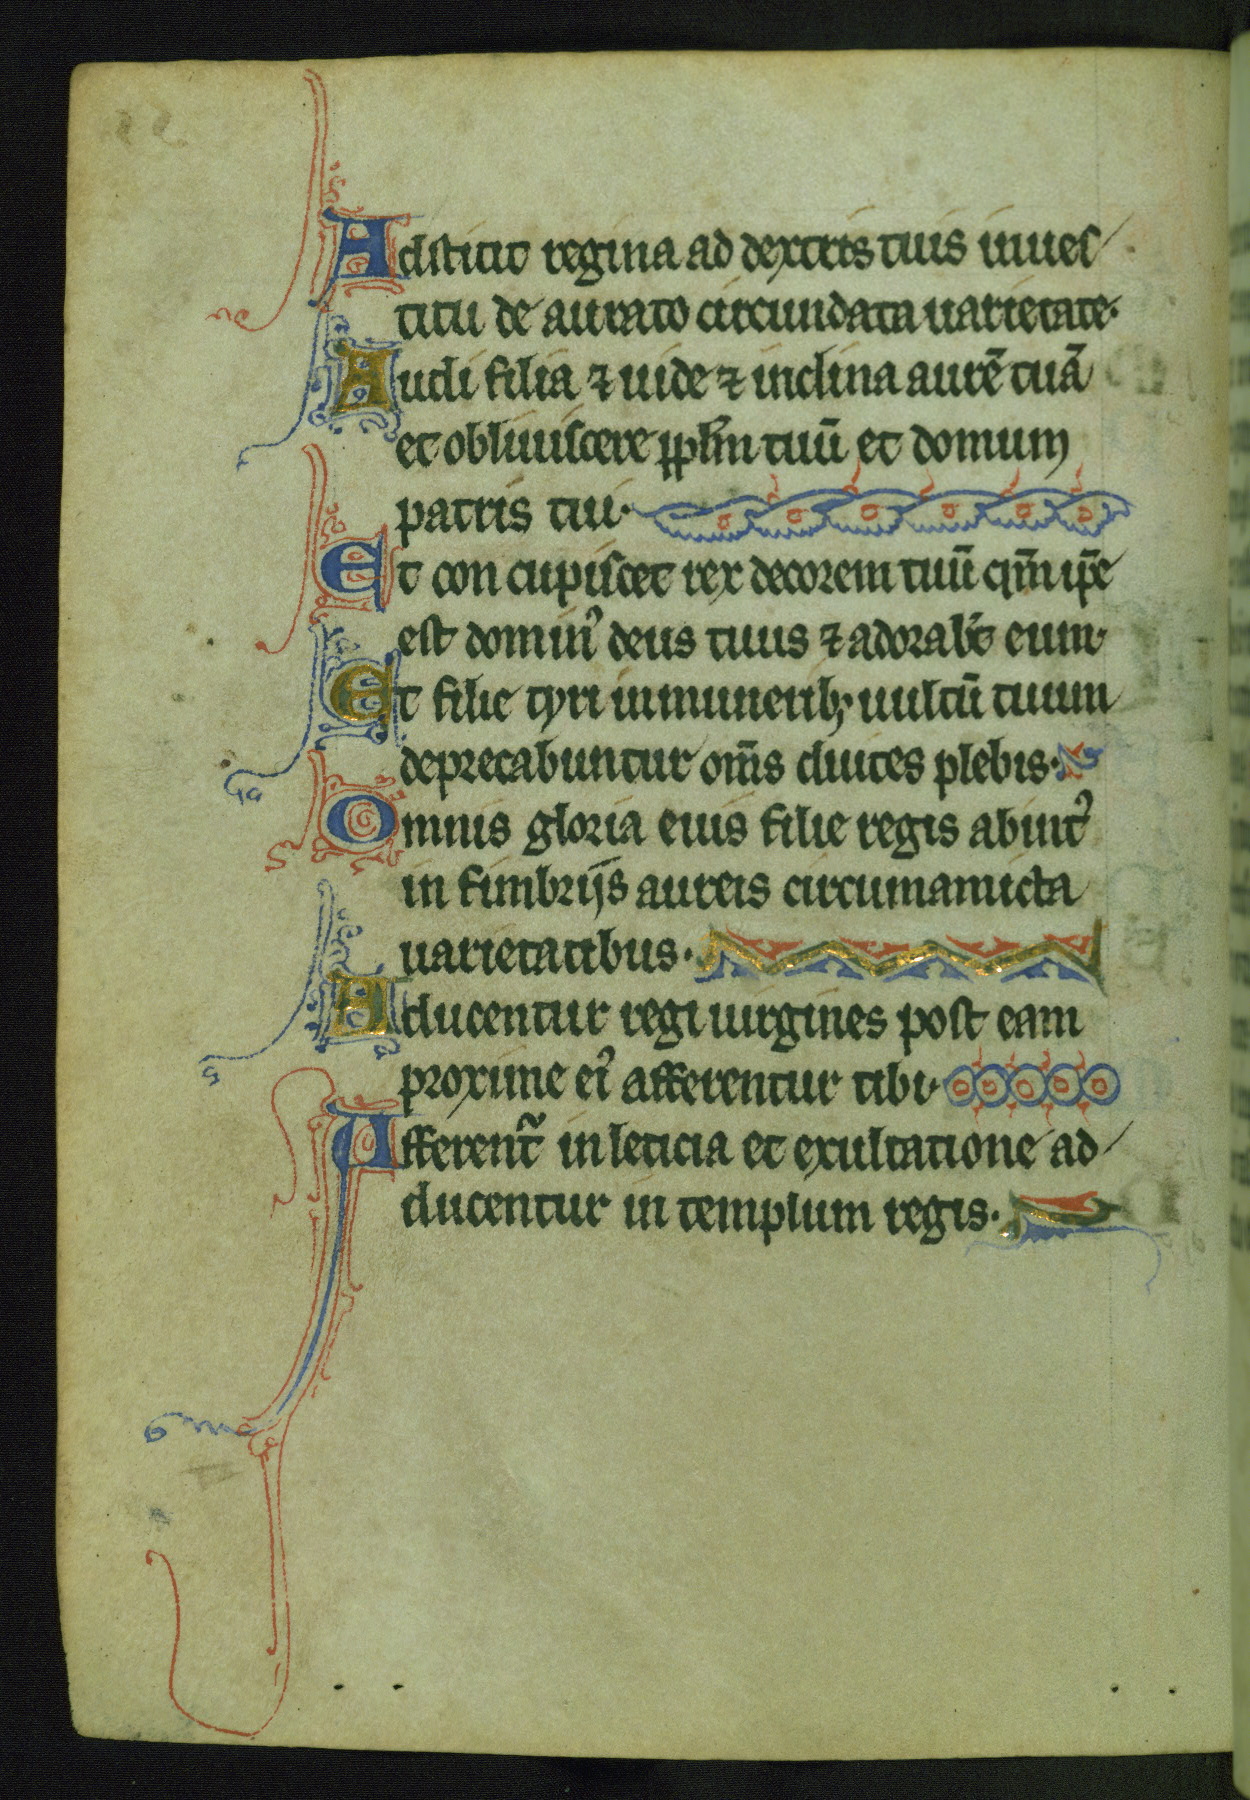 Adstitit regina ad dextris tuis in ues
titu de aurato circundata uarietate·
Audi filia ⁊ uide ⁊ inclina aurē tuā
et obliuiscere pplm̄ tuū et domum
patris tui·
Et con cupiscet rex decorem tuū qm̄ ip̄e
est domin⁹ deus tuus ⁊ adorab̄t eum·
Et filie tyri in munerib; uultū tuum
deprecabuntur om̄s diuites plebis·
Omnis gloria eius filie regis abint⁹
in fimbrijs aureis circumamicta
uarietatibus·
Aducentur regi uirgines post eam
proxime ei⁹ afferentur tibi·
Afferent᷑ in leticia et exultatione ad
ducentur in templum regis·